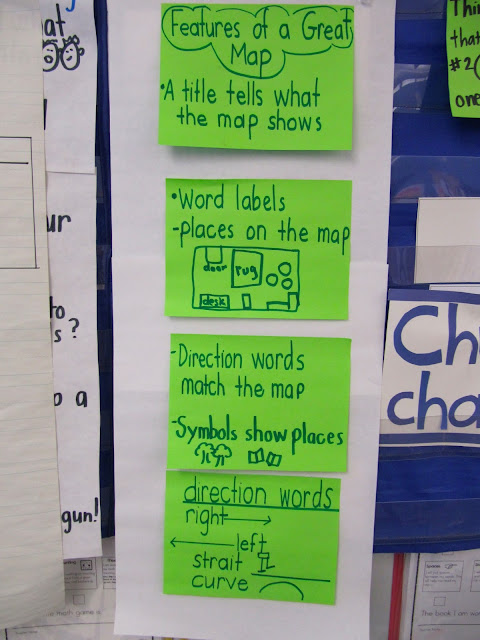 Features of a Great
Map
•A title tells what
the map shows
•Word labels
-places on the map
door
rug
desk
-Direction words
match the map
-Symbols show places
direction words
right
left
strait
curve
at
ur
to
s?
o a
gun!
Ch
cha
Thi
that
#2
one
The book I am